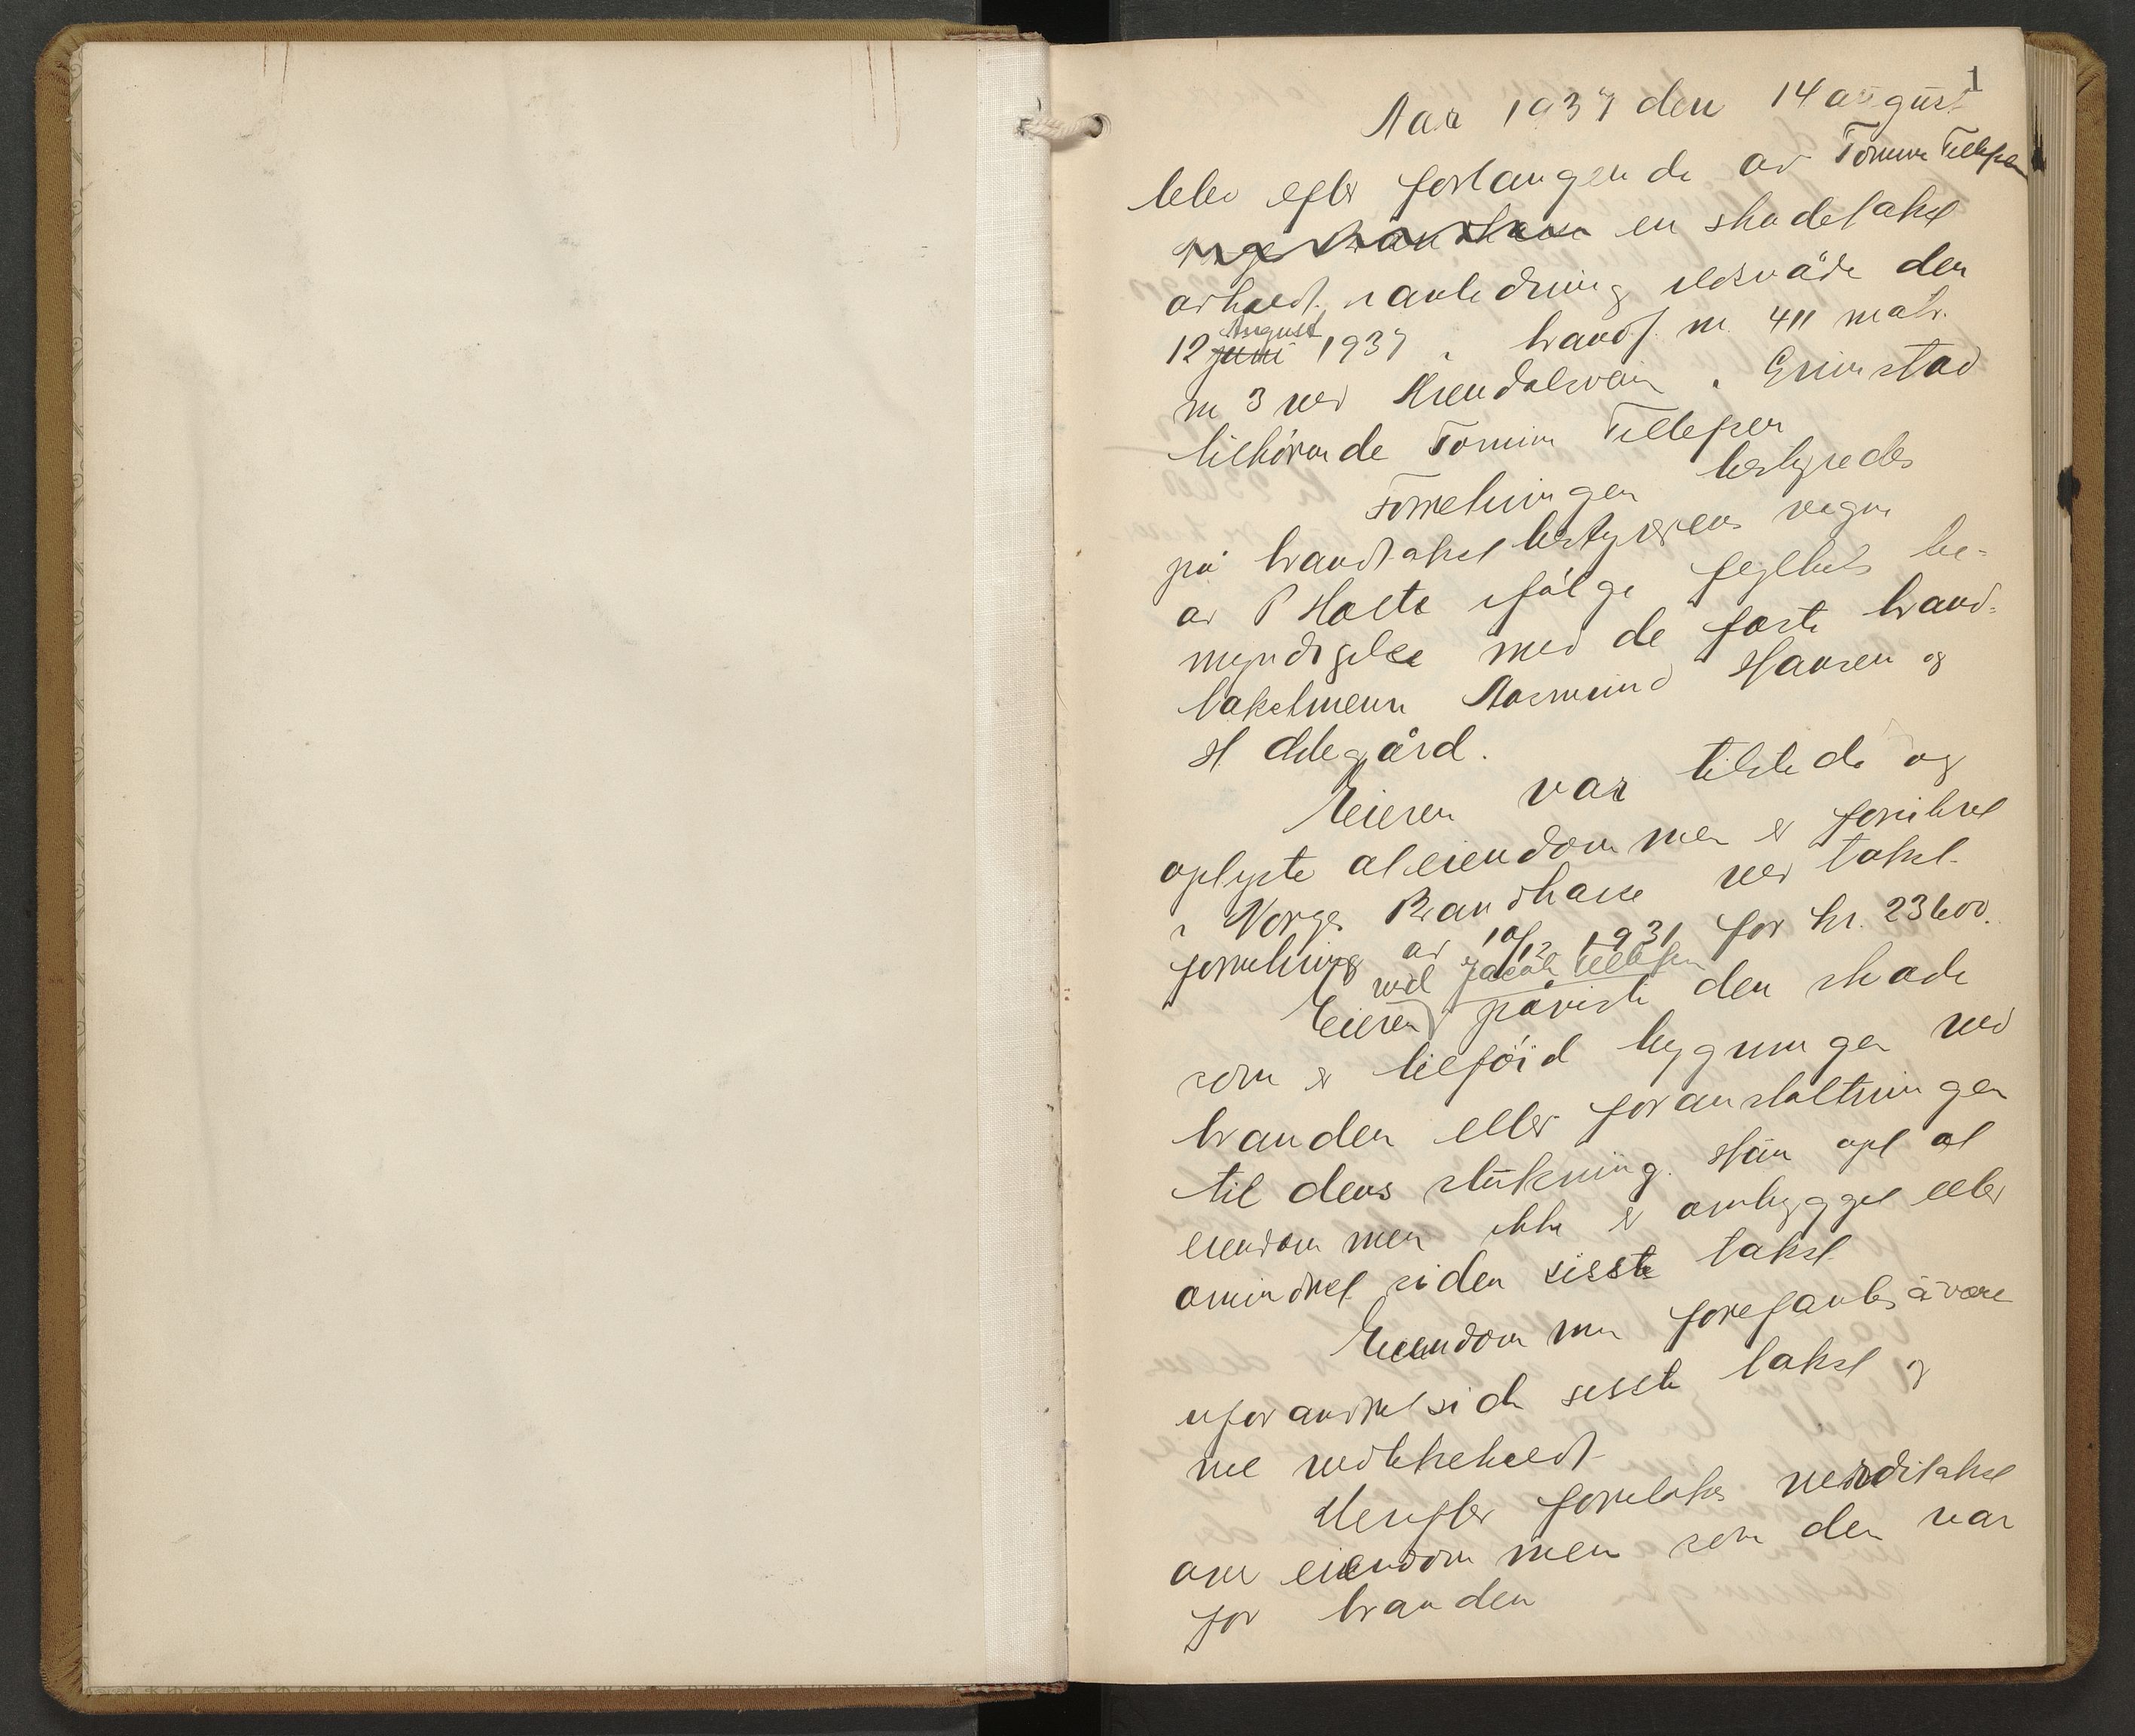 1
Aar 1937 den 14 august
blev efter forlangende av Tomine Tellefsen
Norges Brandkasse en skadetakst
avholdt i anledning ildsvåde den
12 juni August 1937 i brandf. nr. 411 matr.
nr 3 ved Arendalsvein i Grimstad
tilhörende Tomine Tellefsen
Forretningen bestyredes
på brandtakst bestyrerens vegne
av P Holte ifölge fogdens be-
myndigelse med de faste brand-
takstmenn Aasmund Hansen og
H Ødegård.
Eieren var tilstede og
oplyste at eiendommen er forsikret
i Norges Brandkasse ved takst-
forretning av 10/12 1931 for kr. 23600.
Eieren ved Jacob Tellefsen påviste den skade
som er tilföid bygningen ved
branden eller foranstaltningen
til dens slukning. Han opl at
eiendommen ikke er ombygget eller
omindret siden sisste takst.
Eiendommen forefantes å være
uforandret siden sisste takst og
vel vedlikeholdt
Derefter foretokes verditakst
over eiendommen som den var
for branden